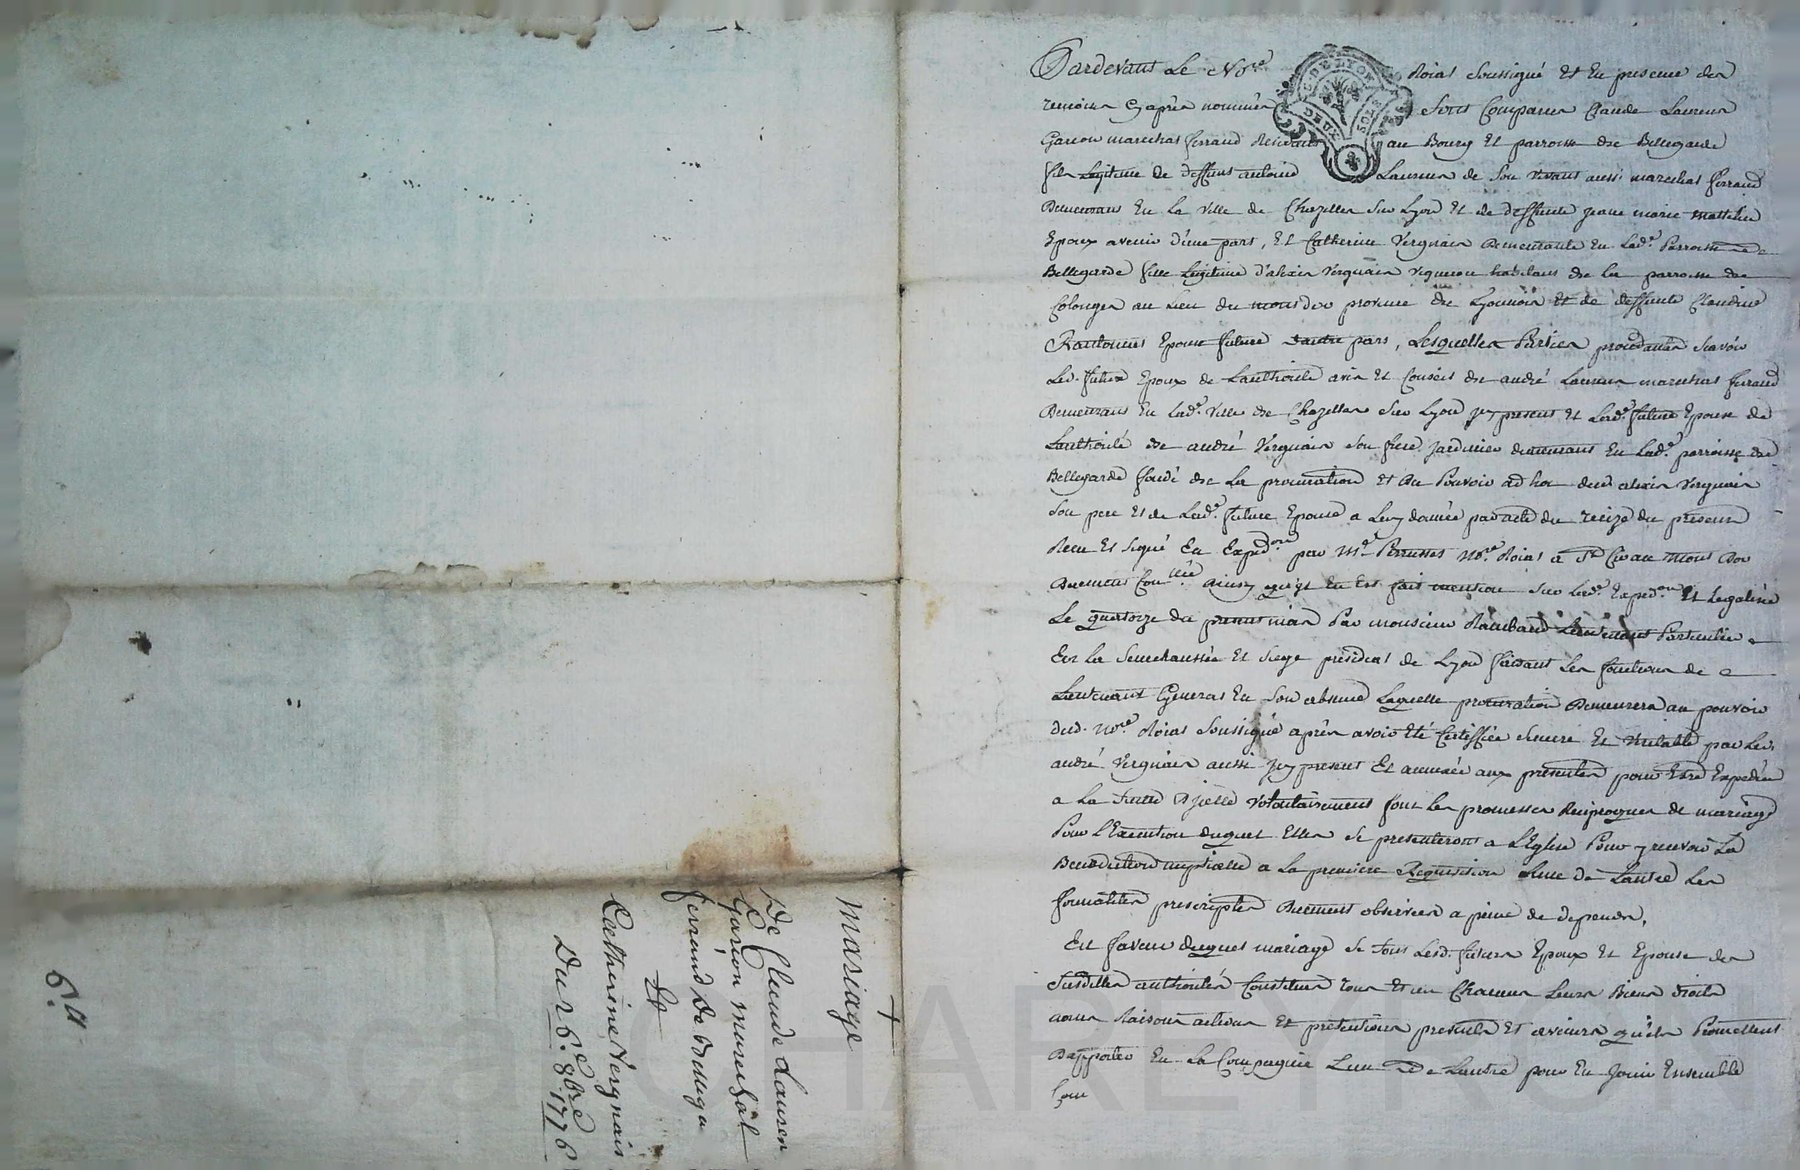 Mariage
De Claude Lauren
Garson marechal
ferrand De Bellega
Et
Catherine Vergnais
Du 26.e 8bre 1776
Pardevant Le No.re Roial soussigné et En presence des
temoins cy après nommés sont Comparus Claude Laurens
Garcon marechal ferrand Residant au Bourg et parroisse de Bellegarde
fils Legitime de deffunt antoine Laurens de son vivant aussi marechal ferrand
Demeurant En la ville de Chazelles sur Lyon et de deffunte jeane marie
Epoux avenir d'une part, Et Catherine Vergnais demeurante En lad.e Parroisse de
Bellegarde fille Legitime d'alexis Vergnais vigneron habitant de la parroisse de
Colonges au lieu du province du Lyonnois et de deffunte Claudine
Epouse future dautre part, Lesquelles Parties procedantes scavoir
Led. futur Epoux de Lauthorité avis et Conseil de andré Laurens marechal ferrand
Demeurant En lad.e ville de Chazelles sur Lyon jcy present et Lad.e future Epouse de
Lauthorité de andré Vergnais son frere jardinier demeurant En lad.e parroisse de
Bellegarde fondé de la procuration et du Pouvoir ad hoc dud. alexis Vergnais
son pere et de Lad.e future Epouse a luy donnée par acte du treize du present
Recu Et signé En Exped.on par M.e No.re Roial a St Cir au Mont Dor
Duement Con.lée Ainsy qu'il En Est fait mention sur lad.e Exped.on Et Legalisé
Le quatorze du present mois Par monsieur Rambaud Lieutenant Particulier
En la senechaussée Et siege presidial de Lyon faisant les fonctions de
Lieutenant General En son absence Laquelle procuration Demeurera au pouvoir
dud. No.re Roial soussigné après avoir Eté Certiffiée sincere Et veritable par Led.
andré Vergnais aussi jcy present Et annexée aux presentes pour Etre Expediée
a la suitte d'jcelle volontairement font les promesses Reciproques de mariage
Pour l'Execution duquel Elles se presenteront a l'Eglise Pour y recevoir La
Benediction nuptialle a la premiere Requisition Lune de Lautre les
formalités prescriptes Duement observées a peine de depends,
En faveur duquel mariage se sont Lesd. futurs Epoux et Epouse des
susdittes authorités Constitués tous et un Chacuns Leurs Biens droits
noms Raisons actions Et pretentions presents Et avenirs quils Promettent
Dapporter En la Compagnie Lun de Lautre pour En jouir Ensemble
DE LYON
DEUX SOLS
CHAREYRON